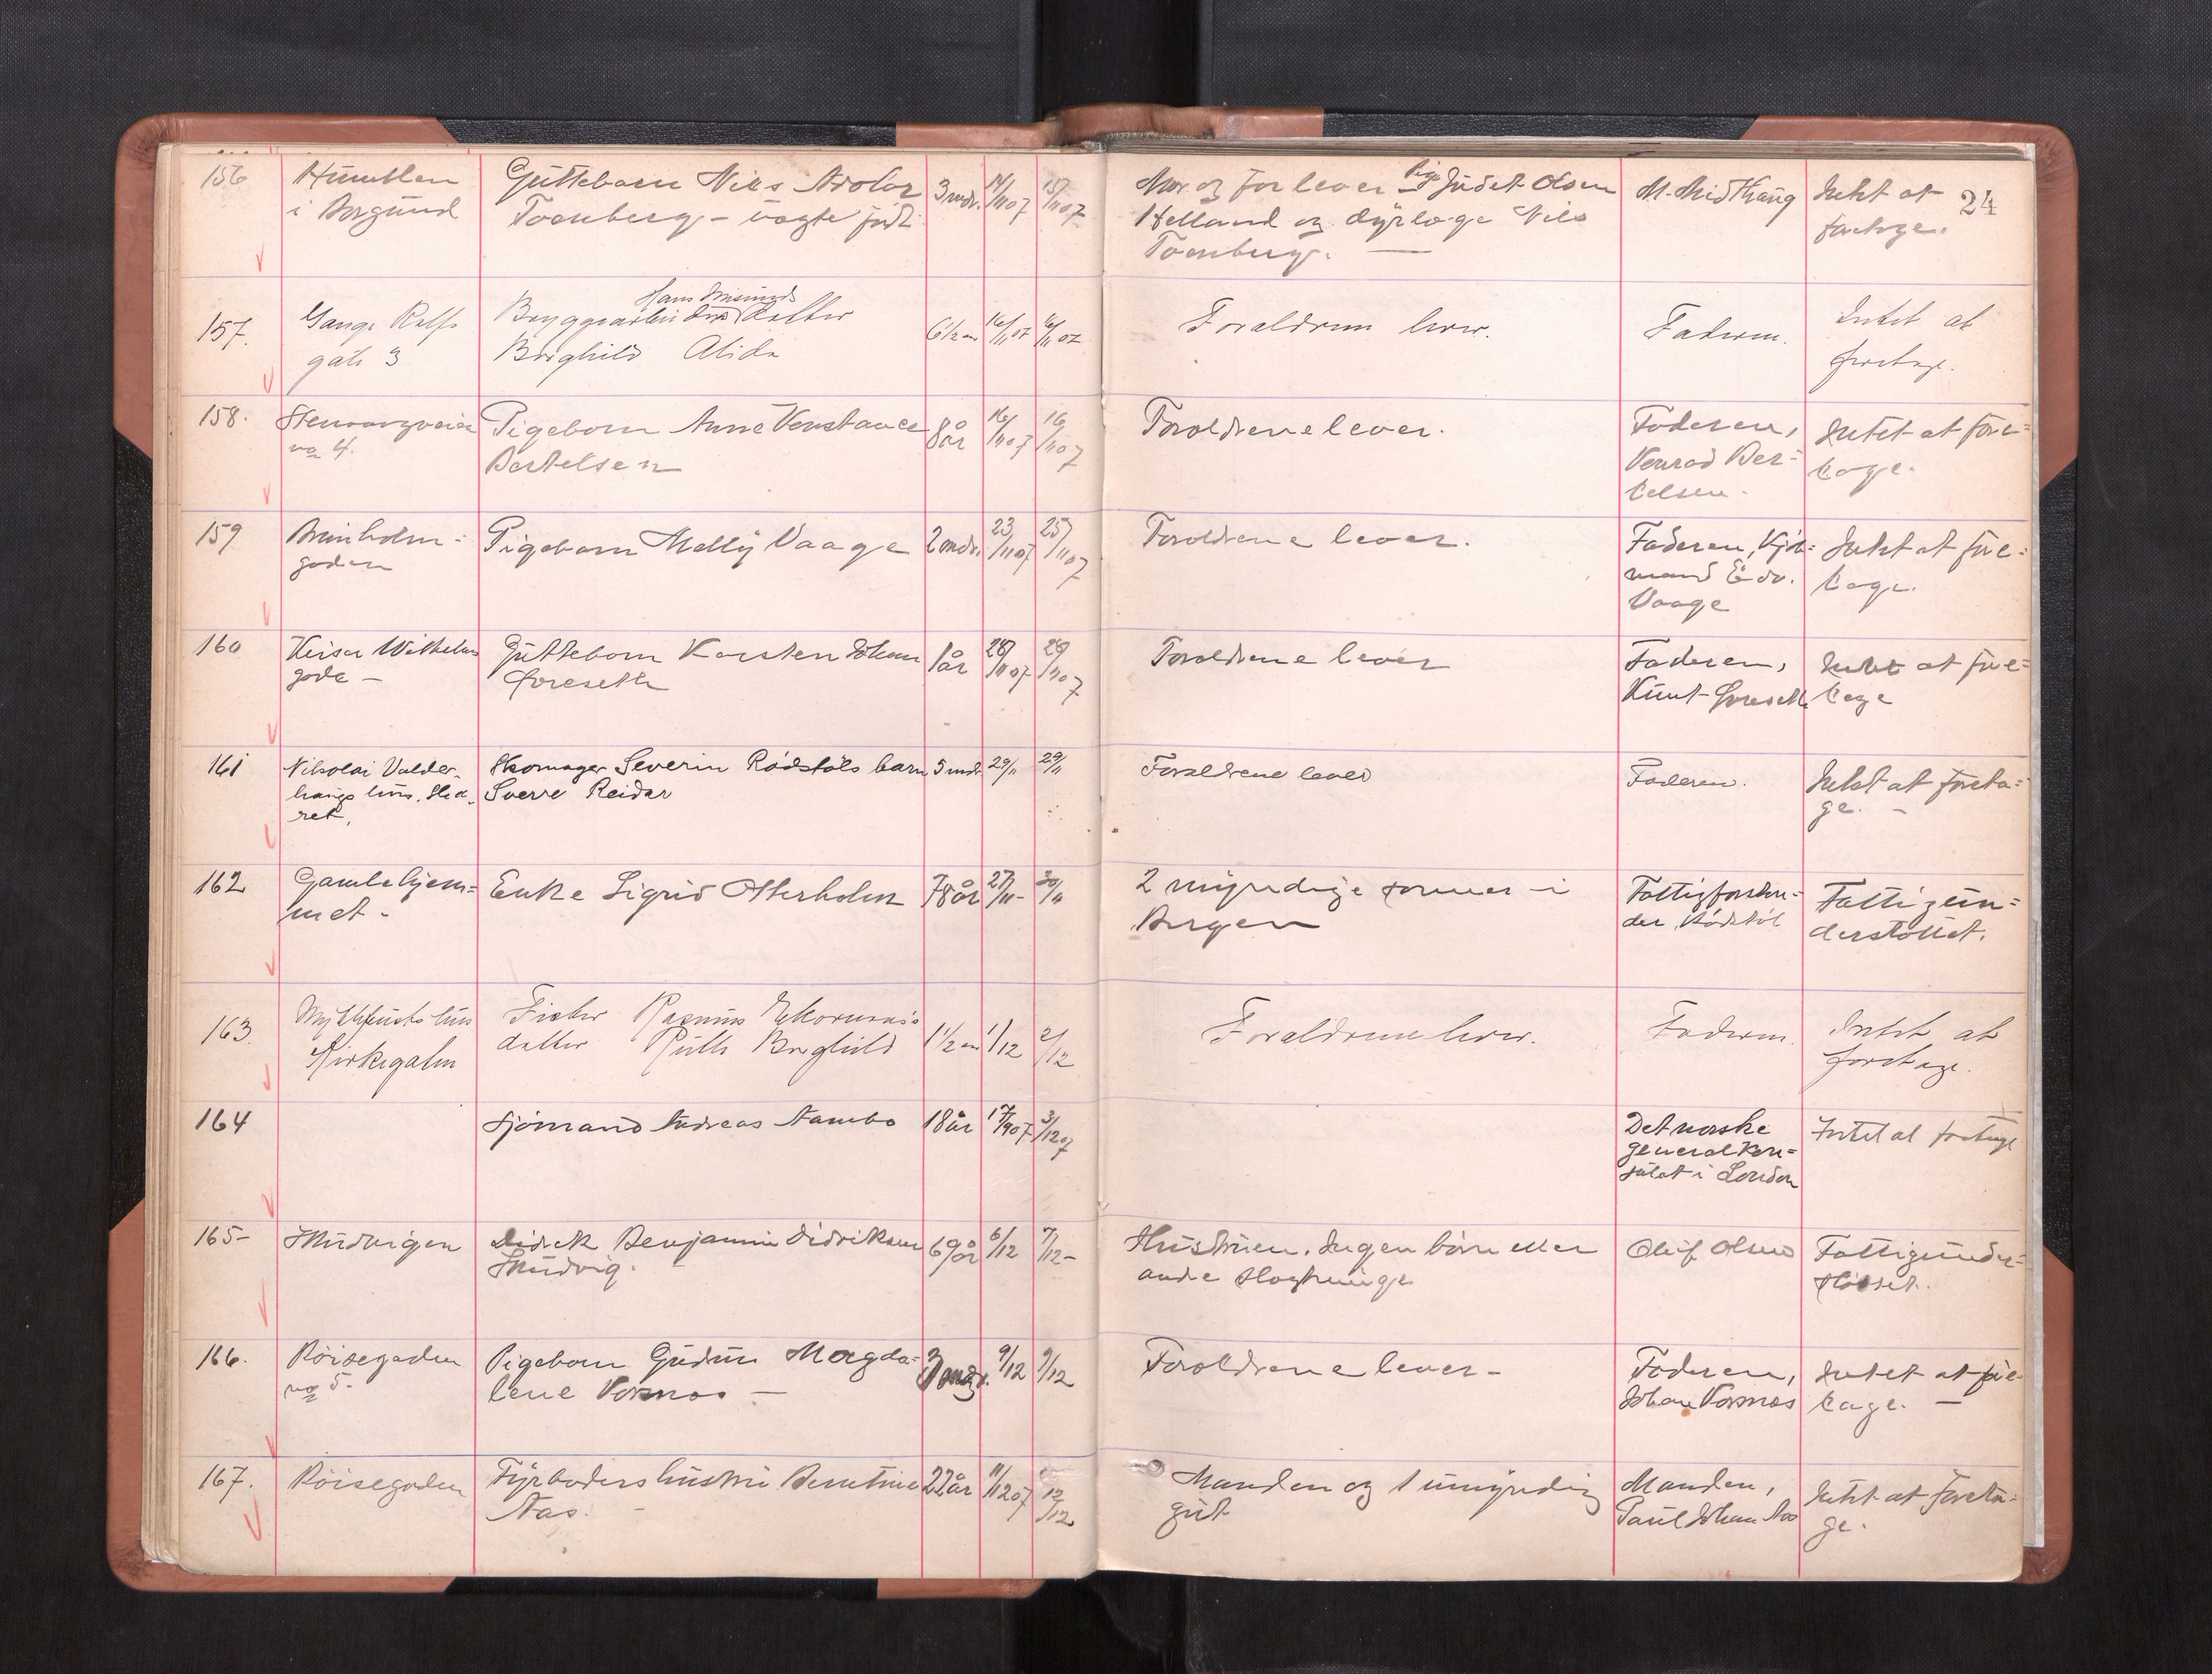 24
156 Humblen 
i Borgund
Guttebarn Nils Arolor
Toenberg - uægte født.
3 mdr. 14/11 07 15/11 07
Mor og Far lever Pige Judit Olsen
Helland og dyrlæge Nils
Toenberg. —
M. Midthaug
Intet at
foretage.
157. Gange Rolfs
gate 3
Hans
Bryggearbeider datter
Borghild Alida
6 1/2 m 16/11 07 16/11 07
Forældrene lever.
Faderen.
Intet at
foretage.
158. Stenvaagveien
no 4.
Pigebarn Anne Konstance
Bertelsen
8 år 16/11 07 16/11 07
Forældrene lever.
Faderen,
Konrad Ber=
telsen.
Intet at fore=
tage.
159 Brunholm=
gaden
Pigebarn Melly Vaage
2 mdr. 23/11 07 25/11 07
Forældrene lever.
Faderen, Kjør=
mand Edv.
Vaage
Intet at fore=
tage.
160 Keiser Wilhelms
gade —
Guttebarn Karsten Johan
Goreseth
1 år 28/11 07 28/11 07
Forældrene lever
Faderen,
Knut Goreseth
Intet at fore=
tage
161 Nikolai Valder-
haugs hus, Sted.
ret.
Skomager Severin Rødstøls barn
Sverre Reidar
5 mdr. 29/11 29/11
Forældrene lever
Faderen.
Intet at foreta=
ge. —
162 Gamlehjem=
met -
Enke Sigrid Otterholm
78 år 27/11 - 30/11
2 myndige sønner i
Bergen
Fattigforstan=
der Rødstøl
Fattigun=
derstøttet.
163. Myklebusts hus
Kirkegaten
Fisker Rasmus Ekornæs's
datter Ruth Borghild
1 1/2 m 1/12 2/12
Forældrene lever.
Faderen.
Intet at
foretage.
164
Sjömand Andreas Aambo
18 år 17/9 07 3/12 07
Det norske
generalkon=
sulat i London
Intet at foretage
165- Skudvigen
Didrik Benjamin Didriksen
Skudvig.
69 år 6/12 7/12 -
Hustruen. Ingen børn eller
andre slægtninge
Oluf Olsen
Fattigunder=
støttet.
166. Röisegaden
no 5.
Pigebarn Gudrun Magda=
lene Vormos —
9/12 9/12
Forældrene lever -
Faderen,
Johan Vormos
Intet at fore=
tage. —
167. Röisegaden
Fyrböders hustru Berntine
Aas. -
22 år 11/12 07 12/12
Manden og 1 umyndig
gut
Manden,
Paul Johan Aas
Intet at foreta=
ge.